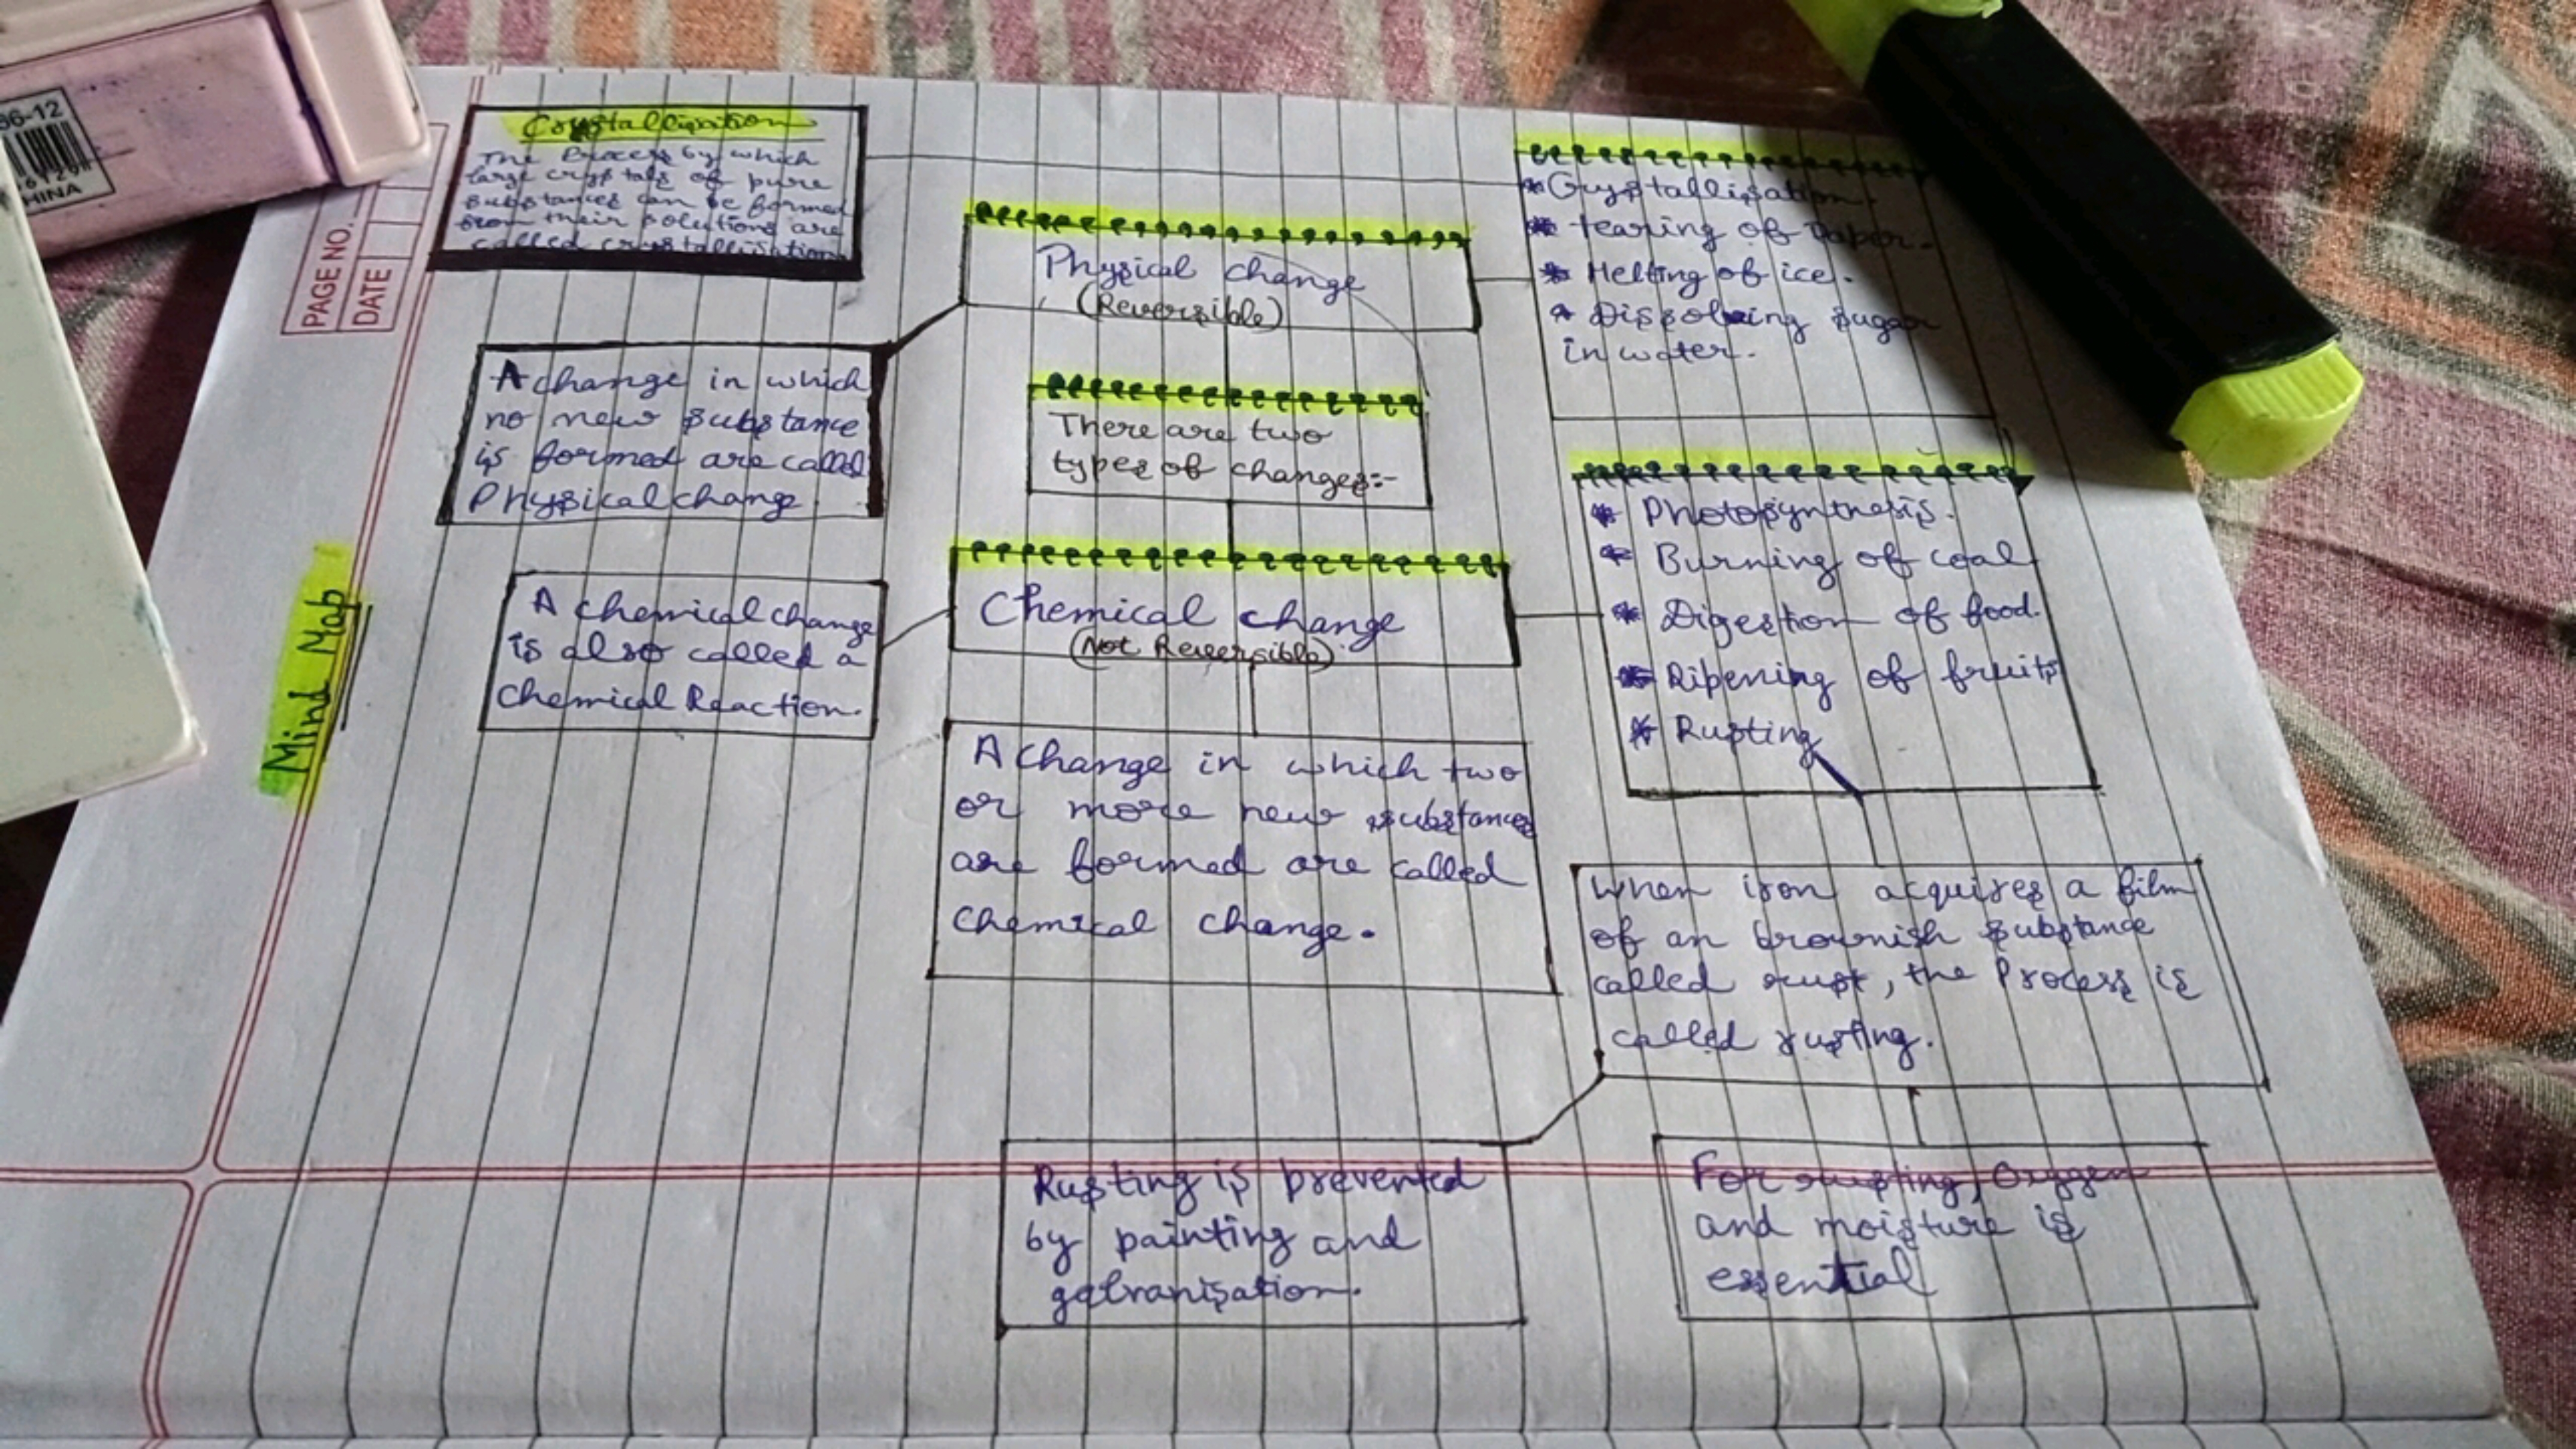 96-12
CHINA
PAGE NO.
DATE
Mind Map
Crystallisation
The Process by which
large crystals of pure
substances can be formed
from their solutions are
called crystallisation
Physical change
(Reversible)
* Crystallisation.
* tearing of Paper.
* Melting of ice.
* Dissolving sugar
in water.
A change in which
no new substance
is formed are called
Physical change.
There are two
types of changes:-
Chemical change
(Not Reversible)
A chemical change
is also called a
Chemical Reaction.
* Photosynthesis.
* Burning of coal
* Digestion of food.
* Ripening of fruits
* Rusting
A change in which two
or more new substances
are formed are called
Chemical change.
When iron acquires a film
of an brownish substance
called rust, the Process is
called rusting.
Rusting is prevented
by painting and
galvanisation.
For rusting, Oxygen
and moisture is
essential